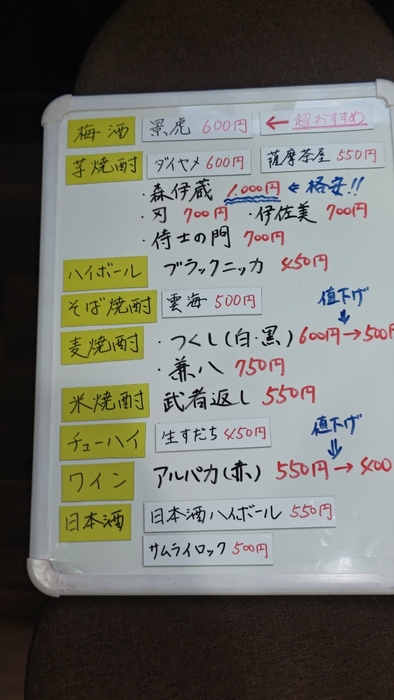 梅酒 景虎 600円 ← 超おすすめ
芋焼酎 ダイヤメ 600円 薩摩茶屋 550円
・森伊蔵 1.000円 ← 格安!!
・刃 700円 ・伊佐美 700円
・侍士の門 700円
ハイボール ブラックニッカ 450円
そば焼酎 雲海 500円 値下げ
麦焼酎 ・つくし(白・黒) 600円→500円
・兼八 750円
米焼酎 武者返し 550円
チューハイ 生すだち 450円 値下げ
ワイン アルパカ(赤) 550円→400
日本酒 日本酒ハイボール 550円
サムライロック 500円